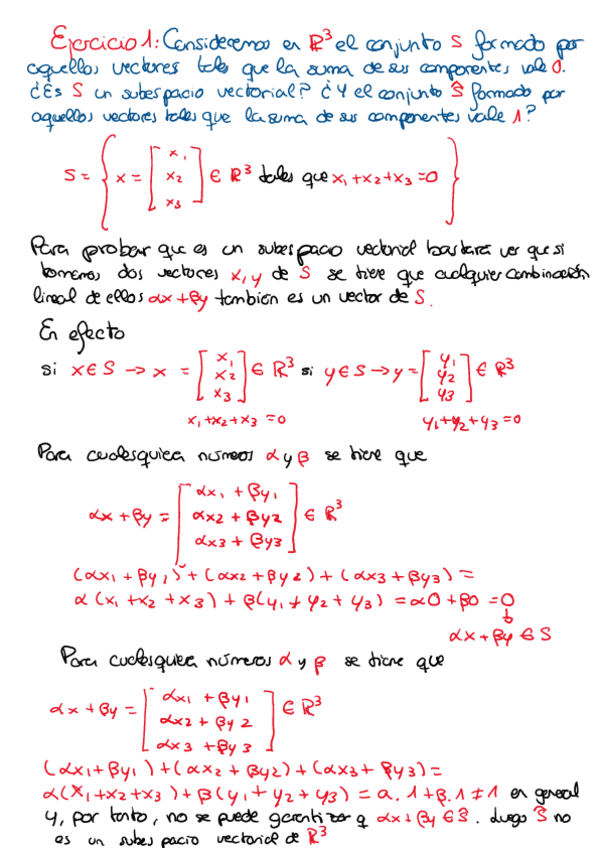 Ejercicio 1: Consideremos en R³ el conjunto S formado por
aquellos vectores tales que la suma de sus componentes vale 0.
¿Es S un subespacio vectorial? ¿Y el conjunto Ŝ formado por
aquellos vectores tales que la suma de sus componentes vale 1?
S = { x = [ x₁ x₂ x₃ ] ∈ R³ tales que x₁+x₂+x₃=0 }
Para probar que es un subespacio vectorial bastará ver que si
tomemos dos vectores x, y de S se tiene que cualquier combinación
lineal de ellos αx+βy tambien es un vector de S.
En efecto
si x∈S → x = [ x₁ x₂ x₃ ] ∈ R³ si y∈S → y = [ y₁ y₂ y₃ ] ∈ R³
x₁+x₂+x₃=0 y₁+y₂+y₃=0
Para cualesquiera números α y β se tiene que
αx+βy = [ αx₁+βy₁ αx2+βy2 αx3+βy3 ] ∈ R³
(αx₁+βy₁)+(αx2+βy2)+(αx3+βy3)=
α(x₁+x₂+x₃)+β(y₁+y₂+y₃)=α0+β0=0
↓
αx+βy∈S
Para cualesquiera números α y β se tiene que
αx+βy = [ αx₁+βy₁ αx2+βy2 αx3+βy3 ] ∈ R³
(αx₁+βy₁)+(αx₂+βy2)+(αx3+βy3)=
α(x₁+x₂+x₃)+β(y₁+y₂+y₃)=a.1+β.1≠1 en general
y, por tanto, no se puede garantizar q αx+βy∈Ŝ. Luego Ŝ no
es un subespacio vectorial de R³